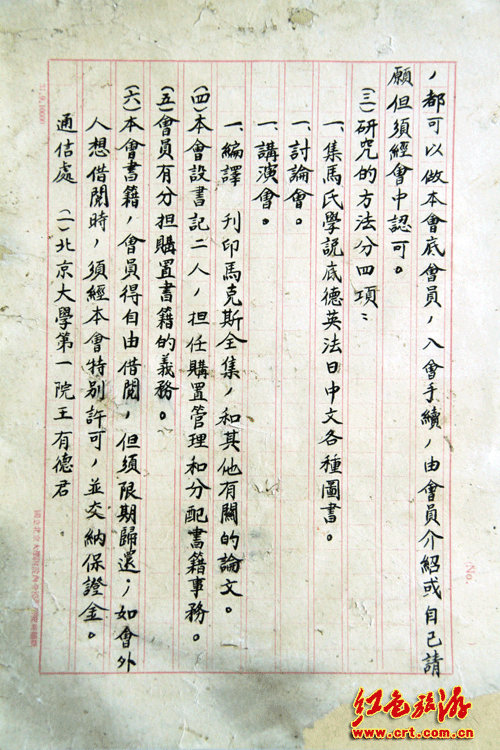 ，都可以做本會底會員，入會手續，由會員介紹或自己請
願但須經會中認可。
(三)研究的方法分四項：
一、集馬氏學說底德英法日中文各種圖書。
一、討論會。
一、講演會。
一、編譯　刊印馬克斯全集，和其他有關的論文。
(四)本會設書記二人，担任購置管理和分配書籍事務。
(五)會員有分担購置書籍的義務。
(六)本會書籍，會員得自由借閱，但須限期歸還；如會外
人想借閱時，須經本會特別許可，並交納保證金。
通信處　(一)北京大學第一院王有德君
No.
红色旅游
www.crt.com.cn